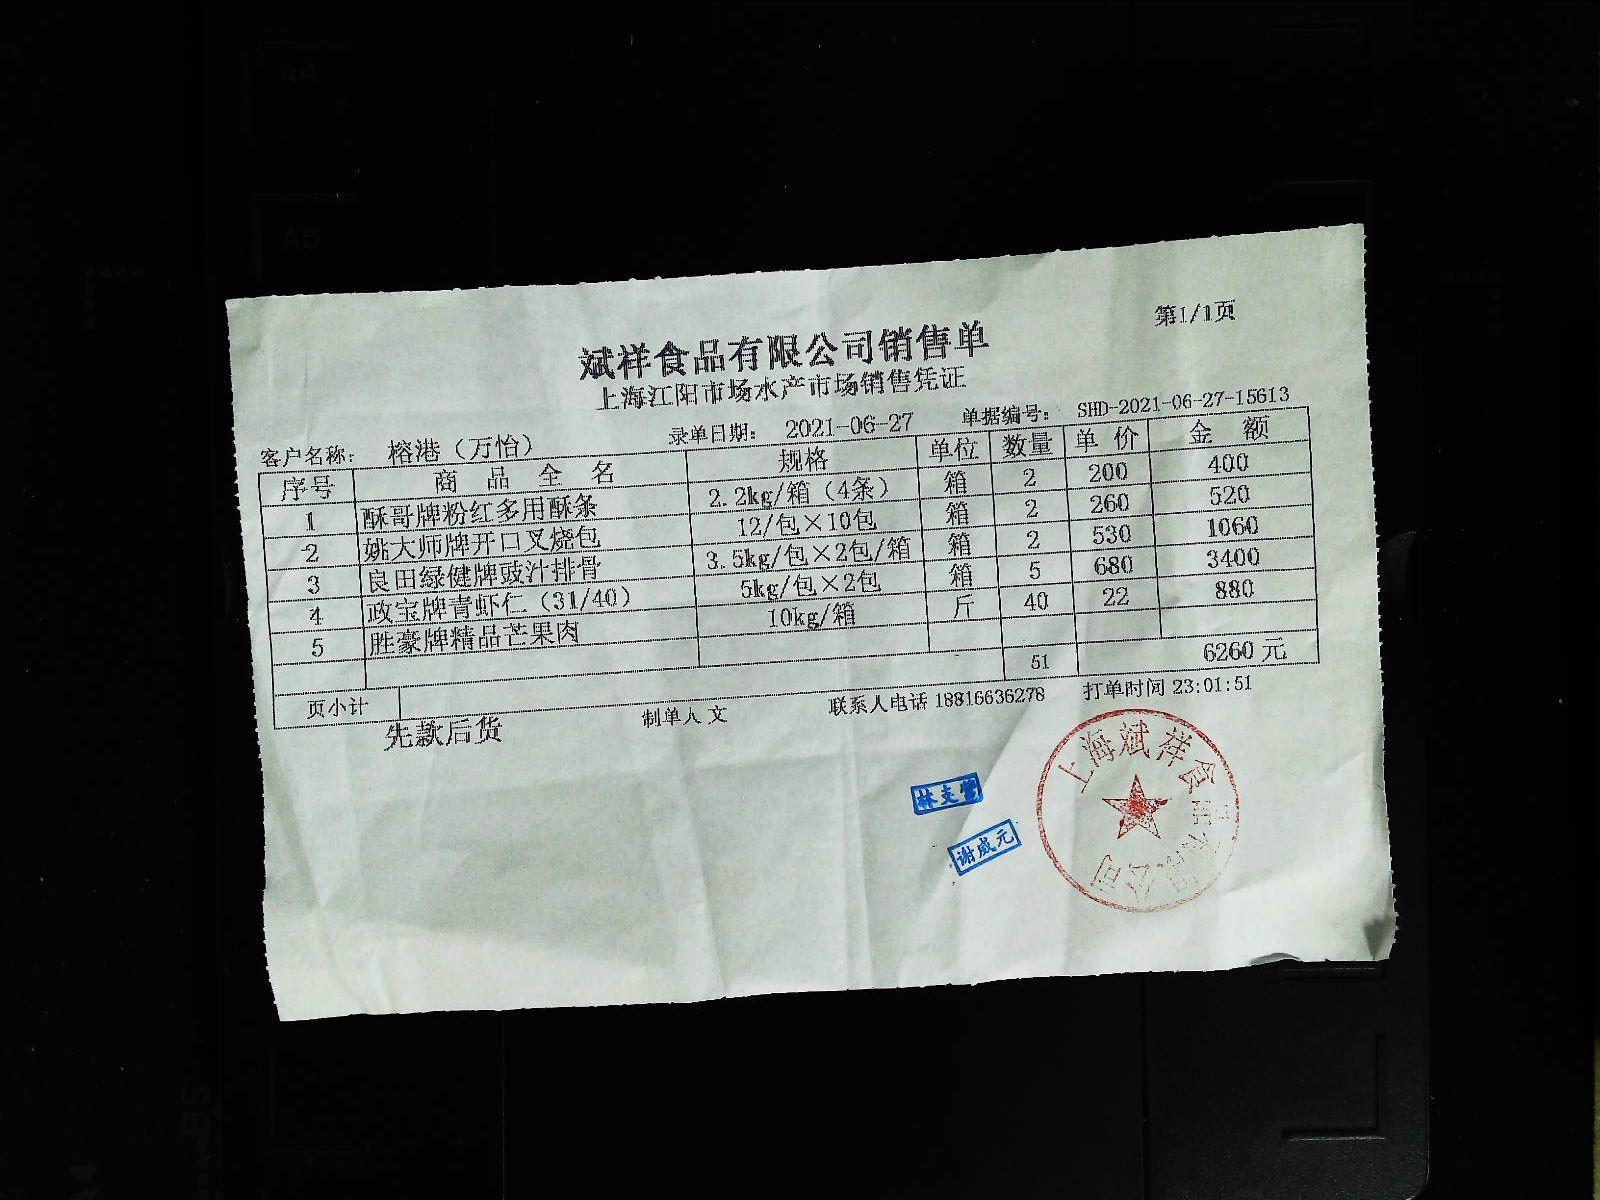 第1/1页
斌祥食品有限公司销售单
上海江阳市场水产市场销售凭证
客户名称： 榕港（万怡） 录单日期： 2021-06-27 单据编号： SHD-2021-06-27-15613
序号 商品全名 规格 单位 数量 单价 金额
1 酥哥牌粉红多用酥条 2.2kg/箱（4条） 箱 2 200 400
2 姚大师牌开口叉烧包 12/包×10包 箱 2 260 520
3 良田绿健牌豉汁排骨 3.5kg/包×2包/箱 箱 2 530 1060
4 政宝牌青虾仁（31/40） 5kg/包×2包 箱 5 680 3400
5 胜豪牌精品芒果肉 10kg/箱 斤 40 22 880
页小计 51 6260 元
先款后货 制单人 文 联系人电话 18816636278 打单时间 23:01:51
谢威元
上海斌祥食品有限公司